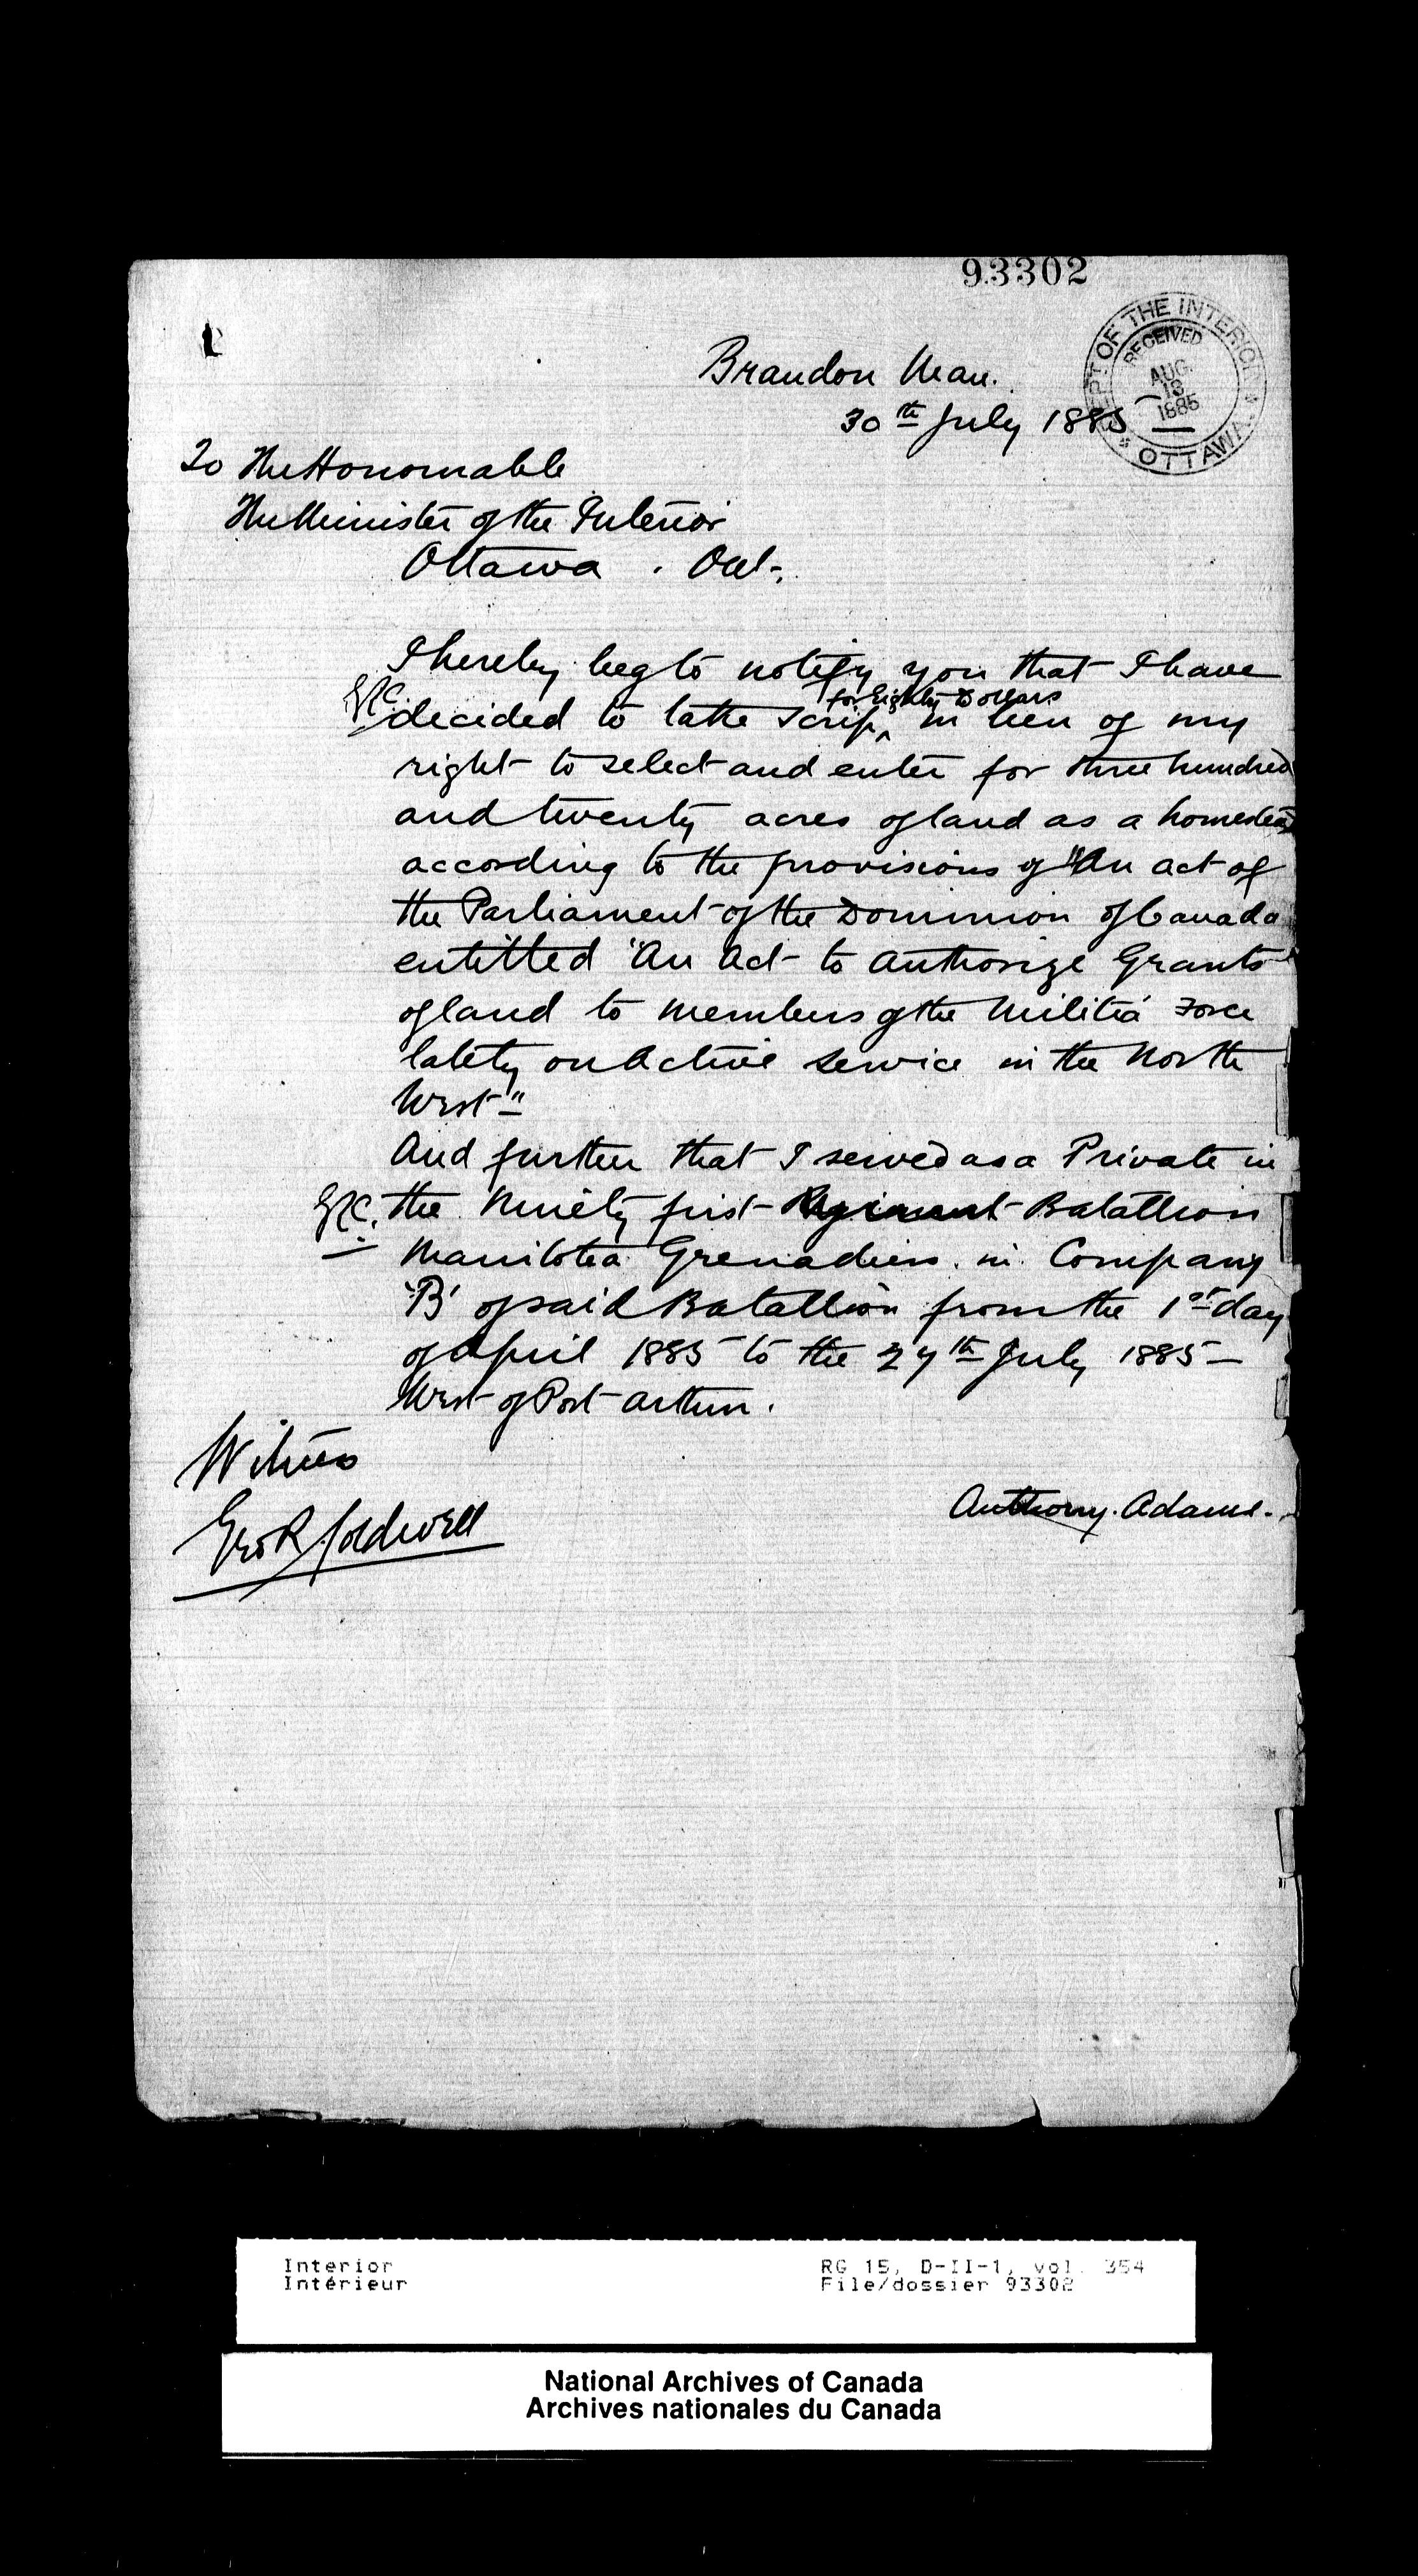 93302
DEPT OF THE INTERIOR
RECEIVED
AUG.
13
1885
OTTAWA
Brandon Man.
30th July 1885
To The Honourable
The Minister of the Interior
Ottawa . Ont.
I hereby beg to notify you that I have
GRC decided to take scrip ^ for Eighty Dollars in lieu of my
right to select and enter for three hundred
and twenty acres of land as a homestead
according to the provisions of "An act of
the Parliament of the Dominion of Canada
entitled "An Act to authorize Grants
of land to members of the Militia Force
lately on Active Service in the North
West"
And further that I served as a Private in
GRC. the Ninety first Regiment Batallion
Manitoba Grenadiers in Company
'B' of said Batallion from the 1st day
of April 1885 to the 27th July 1885 –
West of Port Arthur.
Witness
Geo R. Coldwell
Anthony. Adams.
Interior
Intérieur
RG 15, D-II-1, vol. 354
File/dossier 93302
National Archives of Canada
Archives nationales du Canada